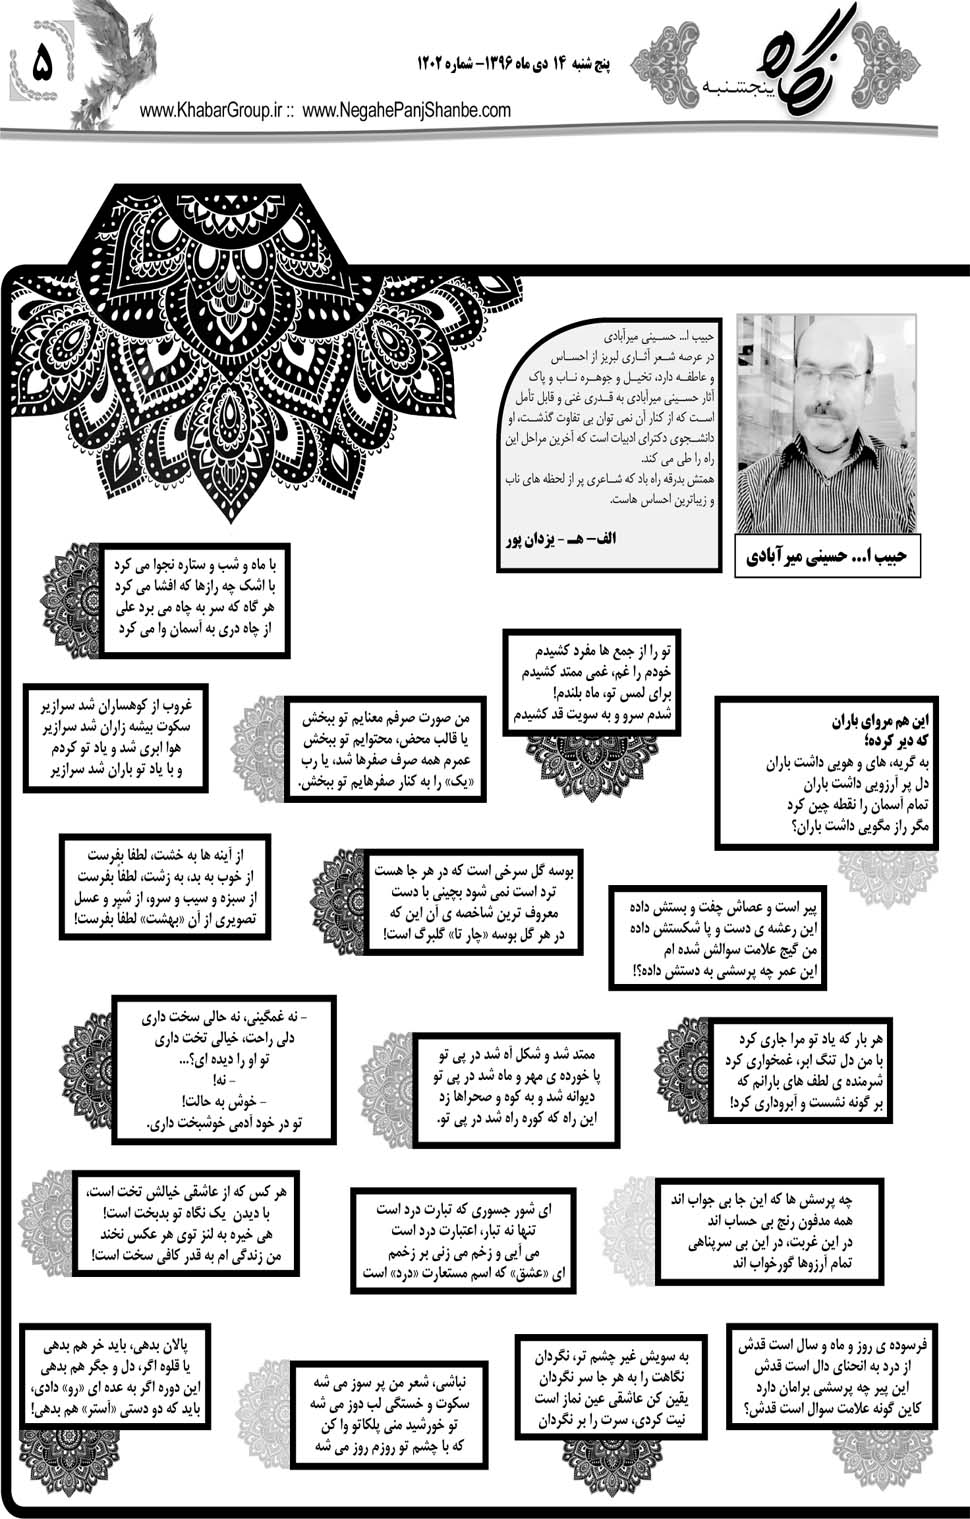 نگاه
پنجشنبه
پنج شنبه ۱۴ دی ماه ۱۳۹۶- شماره ۱۲۰۲
www.KhabarGroup.ir :: www.NegahePanjShanbe.com
۵
حبیب ا... حسینی میرآبادی
در عرصه شعر آثاری لبریز از احساس
و عاطفه دارد، تخیل و جوهره ناب و پاک
آثار حسینی میرآبادی به قدری غنی و قابل تأمل
است که از کنار آن نمی توان بی تفاوت گذشت، او
دانشجوی دکترای ادبیات است که آخرین مراحل این
راه را طی می کند.
همتش بدرقه راه باد که شاعری پر از لحظه های ناب
و زیباترین احساس هاست.
الف- هـ - یزدان پور
حبیب ا... حسینی میرآبادی
با ماه و شب و ستاره نجوا می کرد
با اشک چه رازها که افشا می کرد
هر گاه که سر به چاه می برد علی
از چاه دری به آسمان وا می کرد
تو را از جمع ها مفرد کشیدم
خودم را غم، غمی ممتد کشیدم
برای لمس تو، ماه بلندم!
شدم سرو و به سویت قد کشیدم
غروب از کوهساران شد سرازیر
سکوت بیشه زاران شد سرازیر
هوا ابری شد و یاد تو کردم
و با یاد تو باران شد سرازیر
من صورت صرفم معنایم تو ببخش
یا قالب محض، محتوایم تو ببخش
عمرم همه صرف صفرها شد، یا رب
«یک» را به کنار صفرهایم تو ببخش.
این هم مروای باران
که دیر کرده؛
به گریه، های و هویی داشت باران
دل پر آرزویی داشت باران
تمام آسمان را نقطه چین کرد
مگر راز مگویی داشت باران؟
از آینه ها به خشت، لطفا بفرست
از خوب به بد، به زشت، لطفاً بفرست
از سبزه و سیب و سرو، از شیر و عسل
تصویری از آن «بهشت» لطفاً بفرست!
بوسه گل سرخی است که در هر جا هست
ترد است نمی شود بچینی با دست
معروف ترین شاخصه ی آن این که
در هر گل بوسه «چار تا» گلبرگ است!
پیر است و عصاش چفت و بستش داده
این رعشه ی دست و پا شکستش داده
من گیج علامت سوالش شده ام
این عمر چه پرسشی به دستش داده؟!
- نه غمگینی، نه حالی سخت داری
دلی راحت، خیالی تخت داری
تو او را دیده ای؟...
- نه!
- خوش به حالت!
تو در خود آدمی خوشبخت داری.
ممتد شد و شکل آه شد در پی تو
پا خورده ی مهر و ماه شد در پی تو
دیوانه شد و به کوه و صحراها زد
این راه که کوره راه شد در پی تو.
هر بار که یاد تو مرا جاری کرد
با من دل تنگ ابر، غمخواری کرد
شرمنده ی لطف های بارانم که
بر گونه نشست و آبروداری کرد!
هر کس که از عاشقی خیالش تخت است،
با دیدن یک نگاه تو بدبخت است!
هی خیره به لنز توی هر عکس نخند
من زندگی ام به قدر کافی سخت است!
ای شور جسوری که تبارت درد است
تنها نه تبار، اعتبارت درد است
می آیی و زخم می زنی بر زخمم
ای «عشق» که اسم مستعارت «درد» است
چه پرسش ها که این جا بی جواب اند
همه مدفون رنج بی حساب اند
در این غربت، در این بی سرپناهی
تمام آرزوها گورخواب اند
پالان بدهی، باید خر هم بدهی
یا قلوه اگر، دل و جگر هم بدهی
این دوره اگر به عده ای «رو» دادی،
باید که دو دستی «آستر» هم بدهی!
نباشی، شعر من پر سوز می شه
سکوت و خستگی لب دوز می شه
تو خورشید منی پلکاتو وا کن
که با چشم تو روزم روز می شه
به سویش غیر چشم تر، نگردان
نگاهت را به هر جا سر نگردان
یقین کن عاشقی عین نماز است
نیت کردی، سرت را بر نگردان
فرسوده ی روز و ماه و سال است قدش
از درد به انحنای دال است قدش
این پیر چه پرسشی برامان دارد
کاین گونه علامت سوال است قدش؟